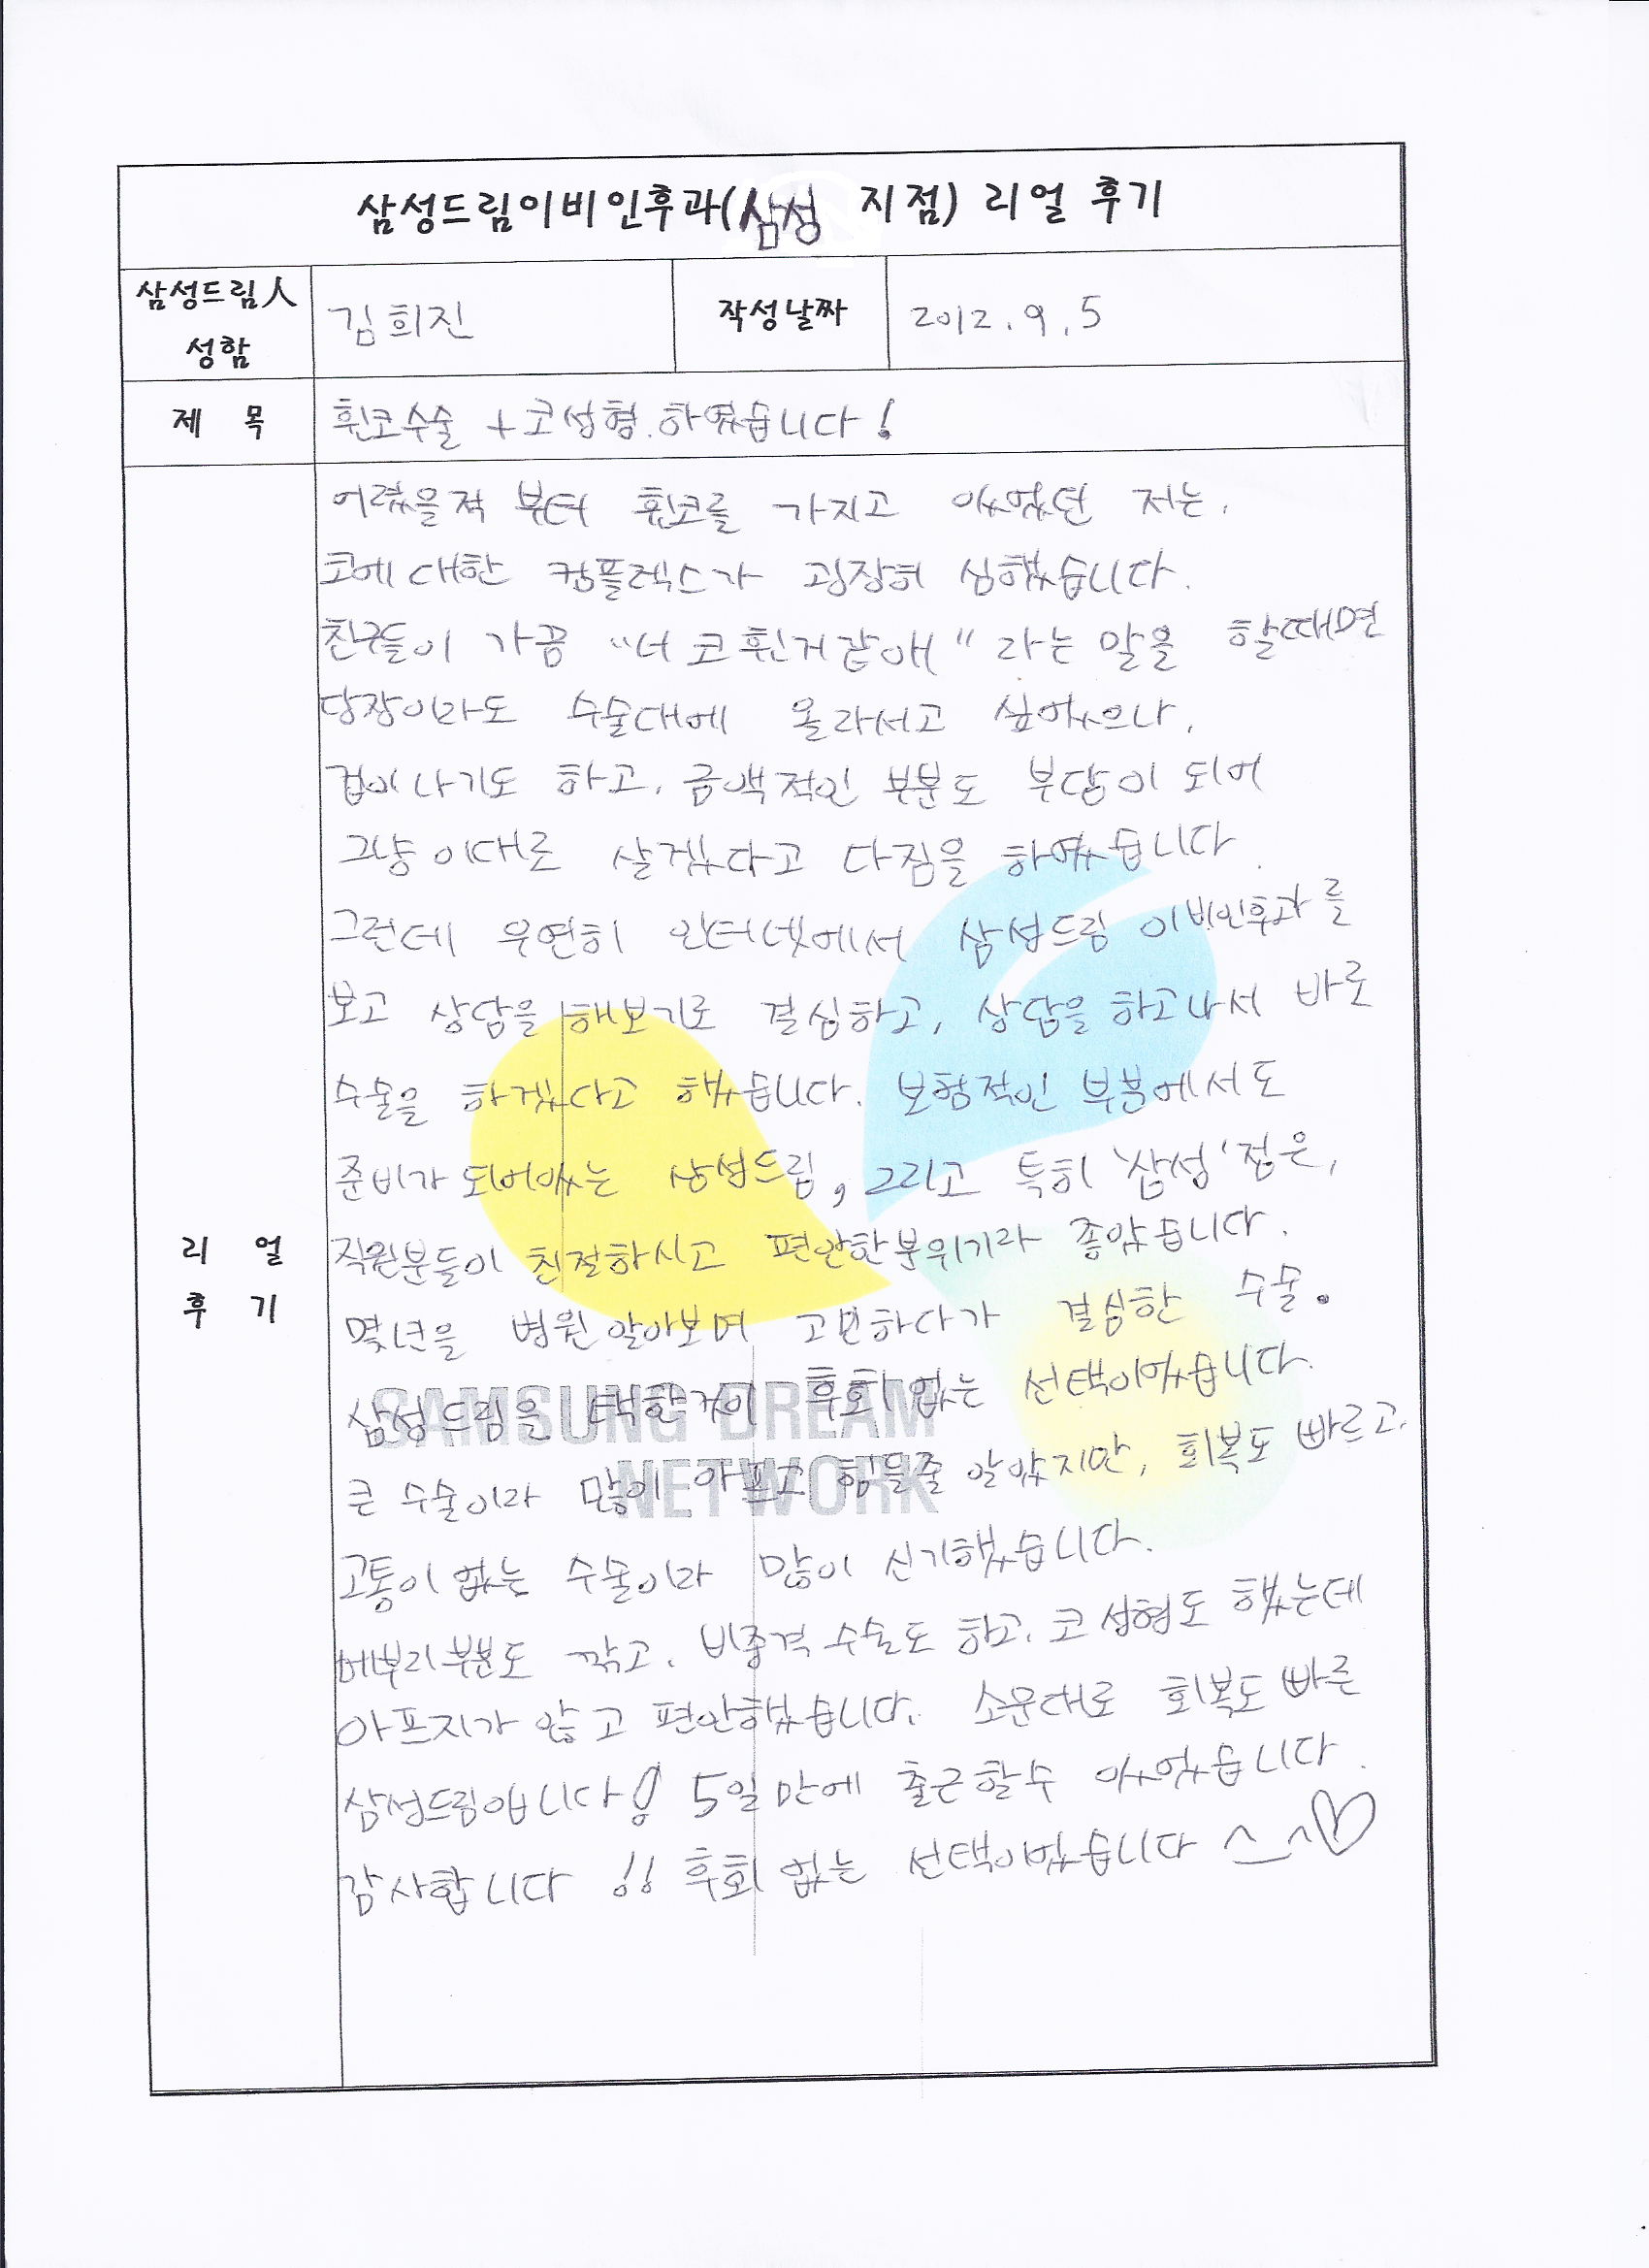 삼성드림이비인후과(삼성 지점) 리얼 후기
삼성드림人 성함 김희진 작성날짜 2012. 9. 5
제 목 휜코수술 + 코성형. 하였습니다!
리 얼 후 기
어렸을적 부터 휜코를 가지고 있었던 저는,
코에 대한 컴플렉스가 굉장히 심했습니다.
친구들이 가끔 "너 코 휜거같애" 라는 말을 할때면
당장이라도 수술대에 올라서고 싶었으나,
겁이 나기도 하고, 금액적인 부분도 부담이 되어
그냥 이대로 살겠다고 다짐을 하였습니다.
그런데 우연히 인터넷에서 삼성드림 이비인후과를
보고 상담을 해보기로 결심하고, 상담을 하고나서 바로
수술을 하겠다고 했습니다. 보험적인 부분에서도
준비가 되어있는 삼성드림, 그리고 특히 '삼성' 점은,
직원분들이 친절하시고 편안한분위기라 좋았습니다.
몇년을 병원 알아보며 고민하다가 결심한 수술.
삼성드림을 택한거이 후회 없는 선택이었습니다.
큰 수술이라 많이 아프고 힘들줄 알았지만, 회복도 빠르고,
고통이 없는 수술이라 많이 신기했습니다.
메부리부분도 깎고, 비중격 수술도 하고, 코 성형도 했는데
아프지가 않고 편안했습니다. 소문대로 회복도 빠른
삼성드림입니다! 5일만에 출근할수 있었습니다.
감사합니다 !! 후회 없는 선택이었습니다 ^_^♡
SAMSUNG DREAM
NETWORK